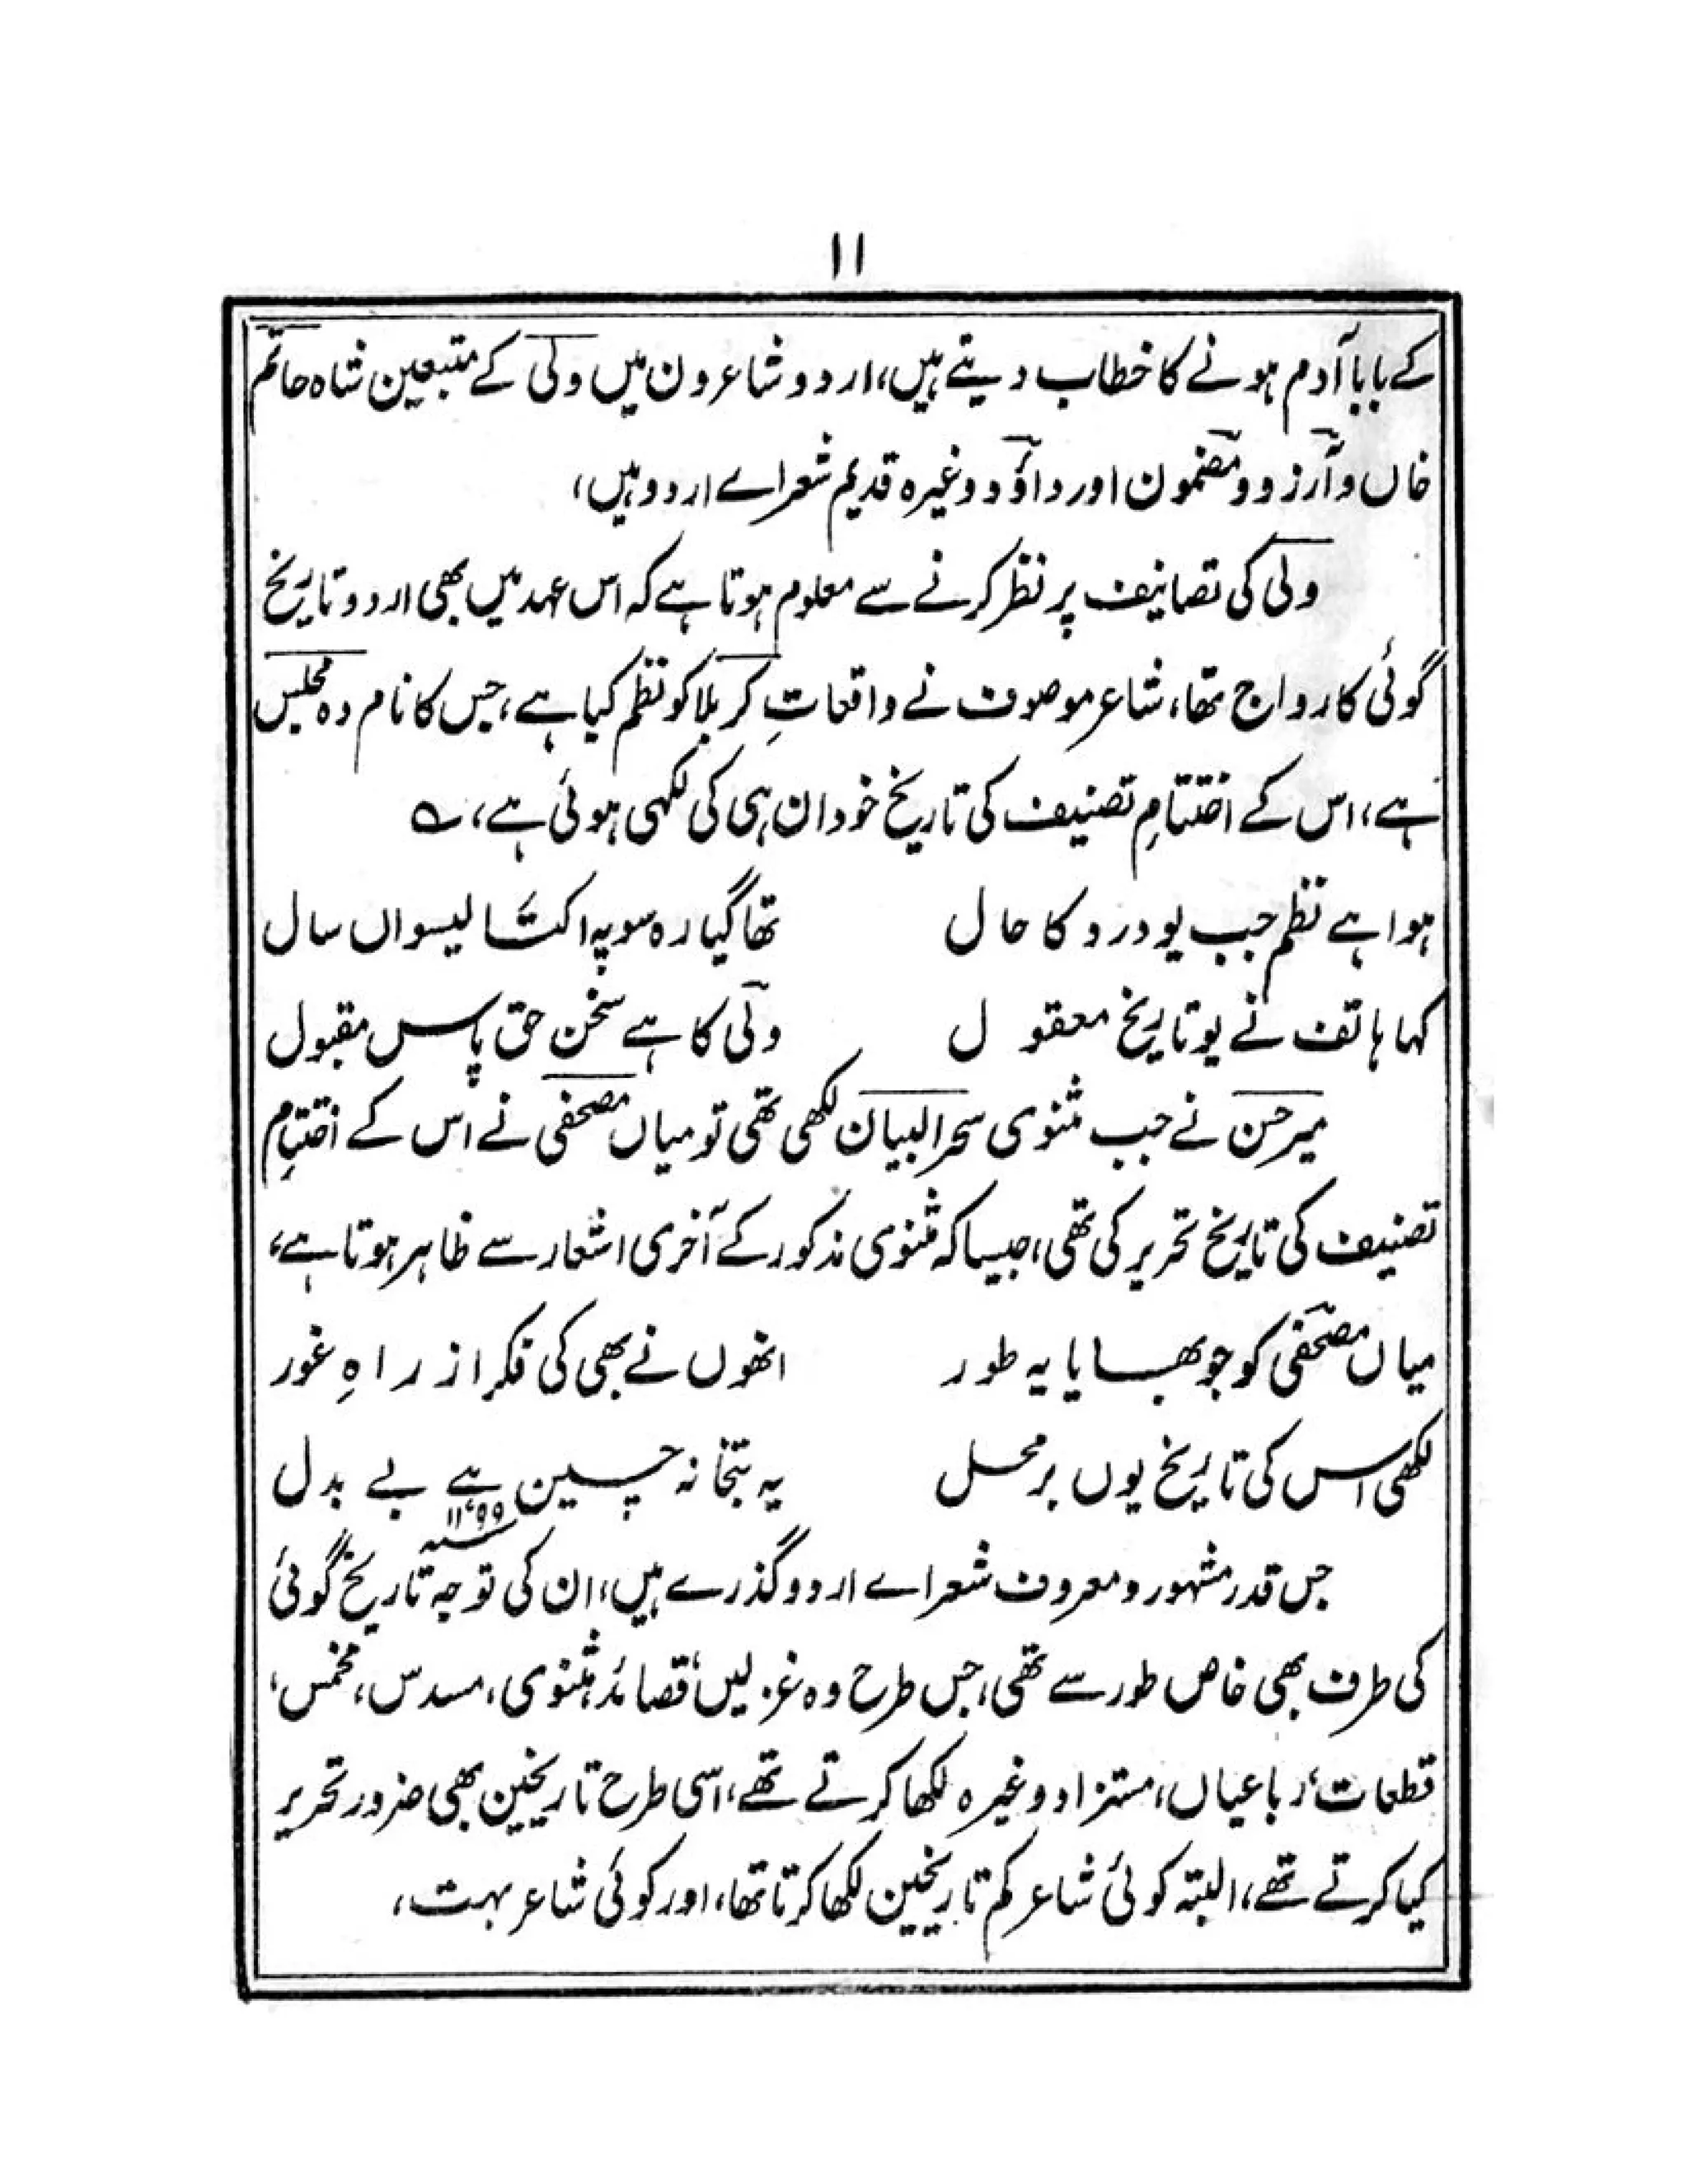 ۱۱
کے بابا آدم ہونے کا خطاب دیتے ہیں، اردو شاعرون میں ولی کے متبعین شاہ حاتم
خاں و آرزو و مضمون اور داؤد وغیرہ قدیم شعراے اردو ہیں،
ولی کی تصانیف پر نظر کرنے سے معلوم ہوتا ہے کہ اس عہد میں بھی اردو تاریخ
گوئی کا رواج تھا، شاعر موصوف نے واقعاتِ کربلا کو نظم کیا ہے، جس کا نام دہ مجلس
ہے، اس کے اختتامِ تصنیف کی تاریخ خود ان ہی کی لکھی ہوئی ہے، ؎
ہوا ہے نظم جب یو درد کا حال تھا گیارہ سو پہ اکتالیسواں سال
کہا ہاتف نے یو تاریخ معقول ولی کا ہے سخن حق پاس مقبول
میر حسن نے جب مثنوی سحر البیان لکھی تھی تو میاں مصحفی نے اُس کے اختتامِ
تصنیف کی تاریخ تحریر کی تھی، جیسا کہ مثنوی مذکور کے آخری اشعار سے ظاہر ہوتا ہے،
میاں مصحفی کو جو بھایا یہ طور انھوں نے بھی کی فکر از راہِ غور
لکھی اس کی تاریخ یوں برمحل یہ بتخانہ چین ہے بے بدل
۱۱۹۹
جس قدر مشہور و معروف شعراے اردو گذرے ہیں، ان کی توجہ تاریخ گوئی
کی طرف بھی خاص طور سے تھی، جس طرح وہ غزلیں، قصائد، مثنوی، مسدس، مخمس،
قطعات، رباعیاں، مستزاد وغیرہ لکھا کرتے تھے، اسی طرح تاریخین بھی ضرور تحریر
کیا کرتے تھے، البتہ کوئی شاعر کم تاریخین لکھا کرتا تھا، اور کوئی شاعر بہت،